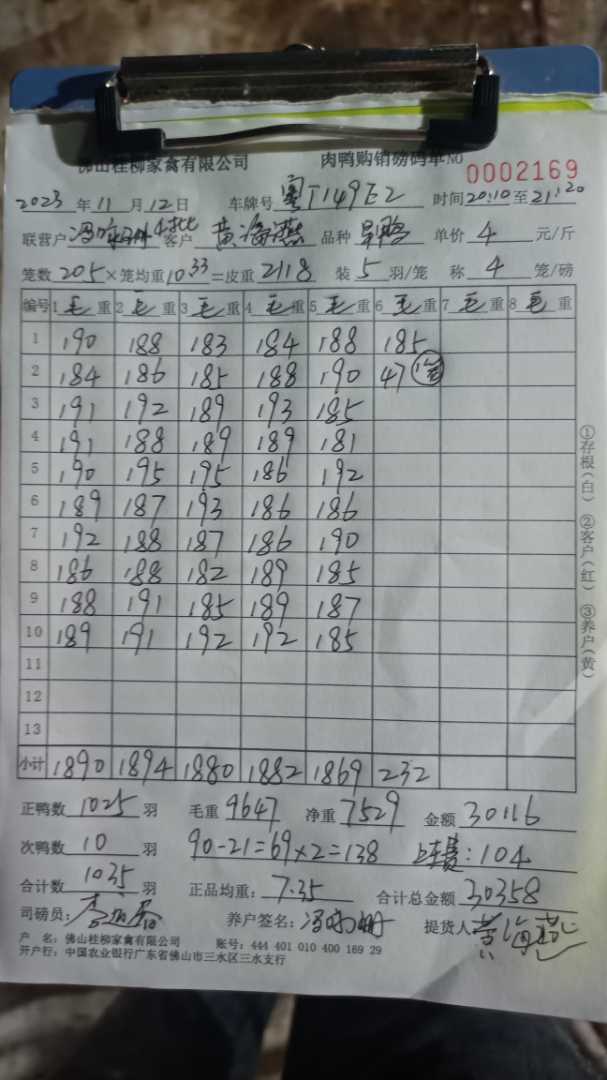 佛山桂柳家禽有限公司 肉鸭购销磅码单NO 0002169
2023年11月12日 车牌号 粤T149E2 时间20:10至21:20
联营户 4批 客户 黄海燕 品种 单价 4 元/斤
笼数205×笼均重10.33=皮重2118 装5羽/笼 称4笼/磅
编号 1毛重 2毛重 3毛重 4毛重 5毛重 6毛重 7毛重 8毛重
1 190 188 183 184 188 185
2 184 186 185 188 190 47
3 191 192 189 193 185
4 191 188 189 189 181
5 190 195 195 186 192
6 189 187 193 186 186
7 192 188 187 186 190
8 186 188 182 189 185
9 188 191 185 189 187
10 189 191 192 192 185
11
12
13
小计 1890 1894 1880 1882 1869 232
正鸭数 1025 羽 毛重 9647 净重 7529 金额 30116
次鸭数 10 羽 90-21=69×2=138 上车费:104
合计数 1035 羽 正品均重: 7.35 合计总金额 30358
司磅员: 养户签名: 提货人 黄海燕
户 名: 佛山桂柳家禽有限公司 账号: 444 401 010 400 169 29
开户行: 中国农业银行广东省佛山市三水区三水支行
①存根(白) ②客户(红) ③养户(黄)